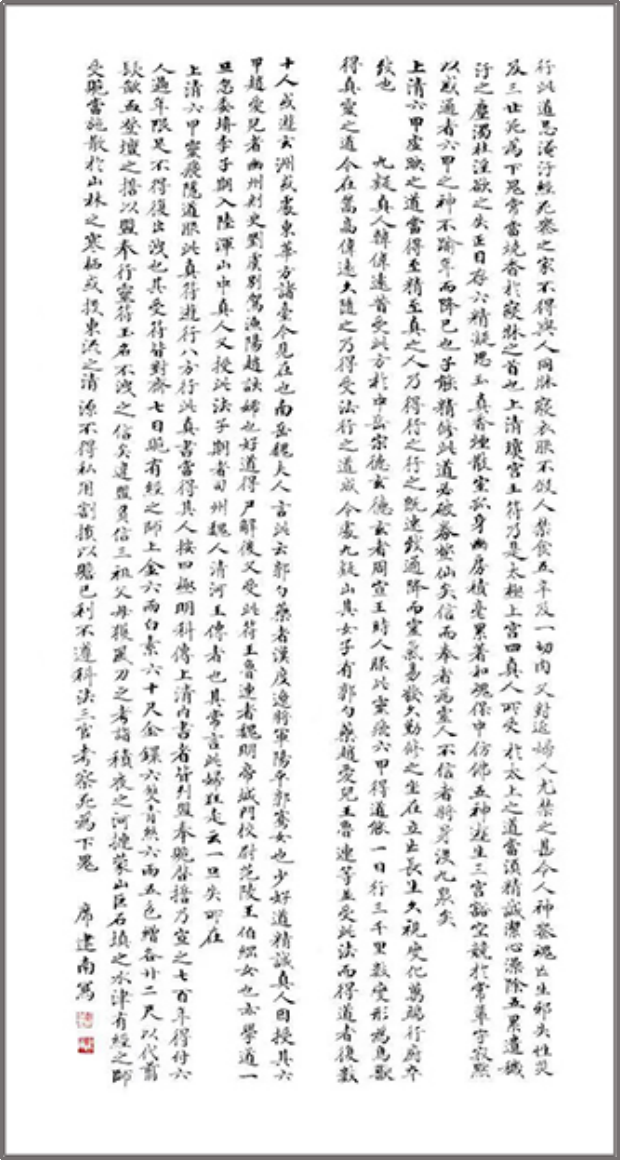 行此道忌淹汙經死喪之家不得與人同牀寢衣服不假人禁食五辛及一切肉又對近婦人尤禁之甚令人神喪魂亡生邪失性災
及三世死為下鬼常當燒香於寢牀之首也上清瓊宮玉符乃是太極上宮四真人所受於太上之道當須精誠潔心澡除五累遺穢
汙之塵濁杜淫欲之失正目存六精凝思玉真香煙散室孤身幽房積毫累著和魂保中仿佛五神遊生三宮豁空競於常輩守寂默
以感通者六甲之神不踰年而降已也子能精修此道必破券登仙矣信而奉者為靈人不信者將身沒九泉矣
上清六甲虛映之道當得至精至真之人乃得行之行之既速致通降而靈氣易發久勤修之坐在立亡長生久視變化萬端行廚卒
致也 九疑真人韓偉遠昔受此方於中岳宗德玄德玄者周宣王時人服此靈飛六甲得道能一日行三千里數變形為鳥獸
得真靈之道今在嵩高偉遠久隨之乃得受法行之道成今處九疑山其女子有郭勺藥趙愛兒王魯連等並受此法而得道者復數
十人或遊玄洲或處東華方諸臺今見在也南岳魏夫人言此云郭勺藥者漢度遼將軍陽平郭騫女也少好道精誠真人因授其六
甲趙愛兒者幽州刺史劉虞別駕漁陽趙該婦也好道得尸解後又受此符王魯連者魏明帝城門校尉范陵王伯綱女也亦學道一
旦忽委壻李子期入陸渾山中真人又授此法子期者司州魏人清河王傳者也其常言此婦狂走云一旦失所在
上清六甲靈飛隱道服此真符遊行八方行此真書當得其人按四極明科傳上清內書者皆列盟奉跪啓誓乃宣之七百年得付六
人過年限足不得復出洩也其受符皆對齋七日跪有經之師上金六兩白素六十尺金鐶六雙青絲六兩五色繒各廿二尺以代翦
髮歃血登壇之誓以盟奉行靈符玉名不洩之信矣違盟負信三祖父母獲風刀之考詣積夜之河掊蒙山巨石填之水津有經之師
受跪當施散於山林之寒栖或投東流之清源不得私用割損以贍己利不遵科法三官考察死為下鬼 席建南寫